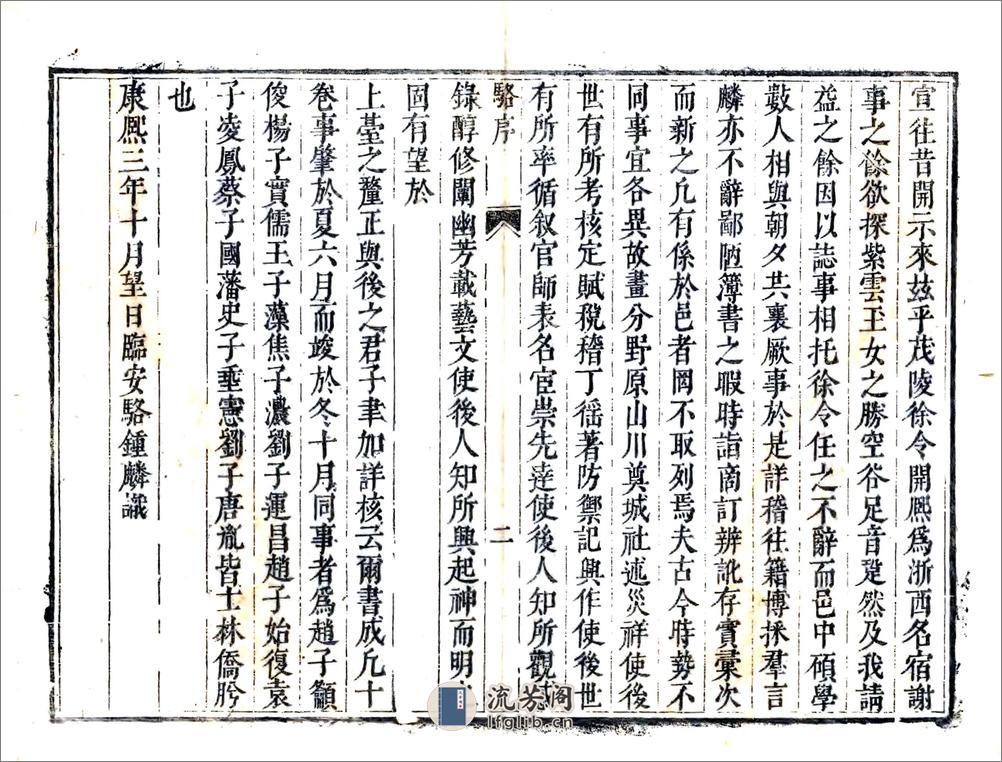 宣往昔開示來玆平茂陵徐令開熙爲浙西名宿謝
事之餘欲探紫雲玉女之勝空谷足音跫然及我請
益之餘因以誌事相托徐令任之不辭而邑中碩學
數人相與朝夕共襄厥事於是詳稽往籍博採羣言
麟亦不辭鄙陋簿書之暇時詣商訂辨訛存實彙次
而新之凡有係於邑者罔不取列焉夫古今時勢不
同事宜各異故畫分野原山川奠城社述災祥使後
世有所考核定賦稅稽丁徭著防禦記興作使後世
有所率循叙官師表名宦崇先達使後人知所觀
駱序
二
錄醇修闡幽芳載藝文使後人知所興起神而明
固有望於
上臺之釐正與後之君子聿加詳核云爾書成凡十
卷事肇於夏六月而竣於冬十月同事者爲趙子籲
俊楊子實儒王子藻焦子濃劉子運昌趙子始復袁
子凌鳳蔡子國藩史子垂憲劉子唐胤皆士林僑肸
也
康熙三年十月望日臨安駱鍾麟識
流芳阁
lfglib.cn